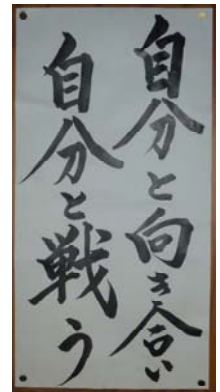 自分と向き合い
自分と戦う